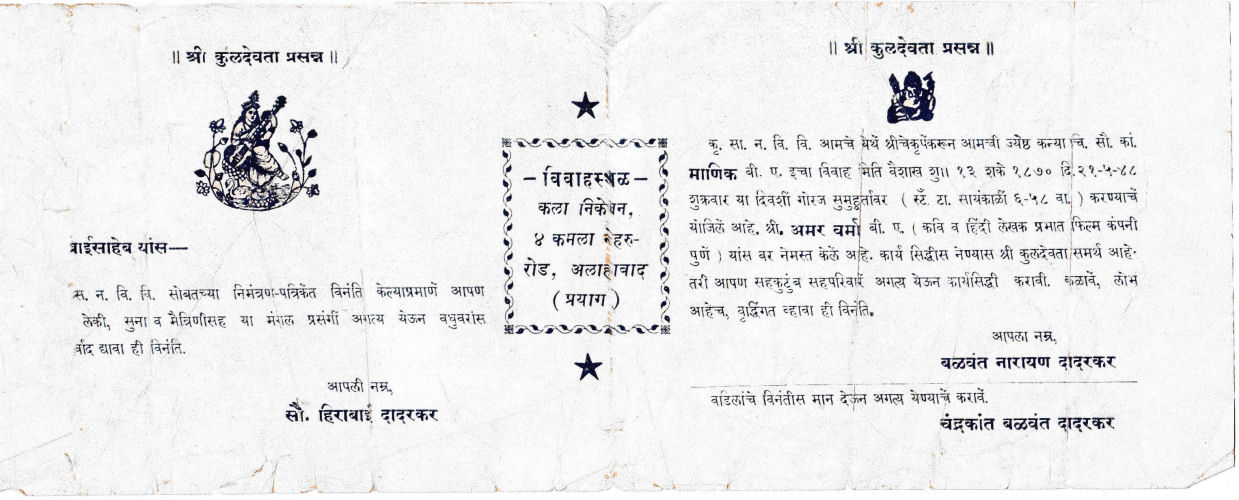 ॥ श्री कुलदेवता प्रसन्न ॥
बाईसाहेब यांस—
स. न. वि. वि. सोबतच्या निमंत्रण-पत्रिकेंत विनंति केल्याप्रमाणें आपण
लेकी, सुना व मैत्रिणीसह या मंगल प्रसंगीं अगत्य येऊन वधुवरांस
र्वाद द्यावा ही विनंति.
आपली नम्र,
सौ. हिराबाई दादरकर
— विवाहस्थळ —
कला निकेतन,
४ कमला नेहरु-
रोड, अलाहाबाद
( प्रयाग )
॥ श्री कुलदेवता प्रसन्न ॥
कृ. सा. न. वि. वि. आमचे येथें श्रीचेकृपेंकरून आमची ज्येष्ठ कन्या चि. सौ. कां.
माणिक बी. ए. इचा विवाह मिति वैशाख शु॥ १३ शके १८७० दि. २१-५-४८
शुक्रवार या दिवशीं गोरज सुमुहूर्तावर ( स्टँ. टा. सायंकाळीं ६-५८ वा. ) करण्याचें
योजिलें आहे. श्री. अमर वर्मा बी. ए. ( कवि व हिंदी लेखक प्रभात फिल्म कंपनी
पुणें ) यांस वर नेमस्त केलें आहे. कार्य सिद्धीस नेण्यास श्री कुलदेवता समर्थ आहे.
तरी आपण सहकुटुंब सहपरिवारें अगत्य येऊन कार्यसिद्धी करावी. कळावें, लोभ
आहेच, वृद्धिंगत व्हावा ही विनंति.
आपला नम्र,
बळवंत नारायण दादरकर
वडिलांचे विनंतीस मान देऊन अगत्य येण्याचें करावें.
चंद्रकांत बळवंत दादरकर